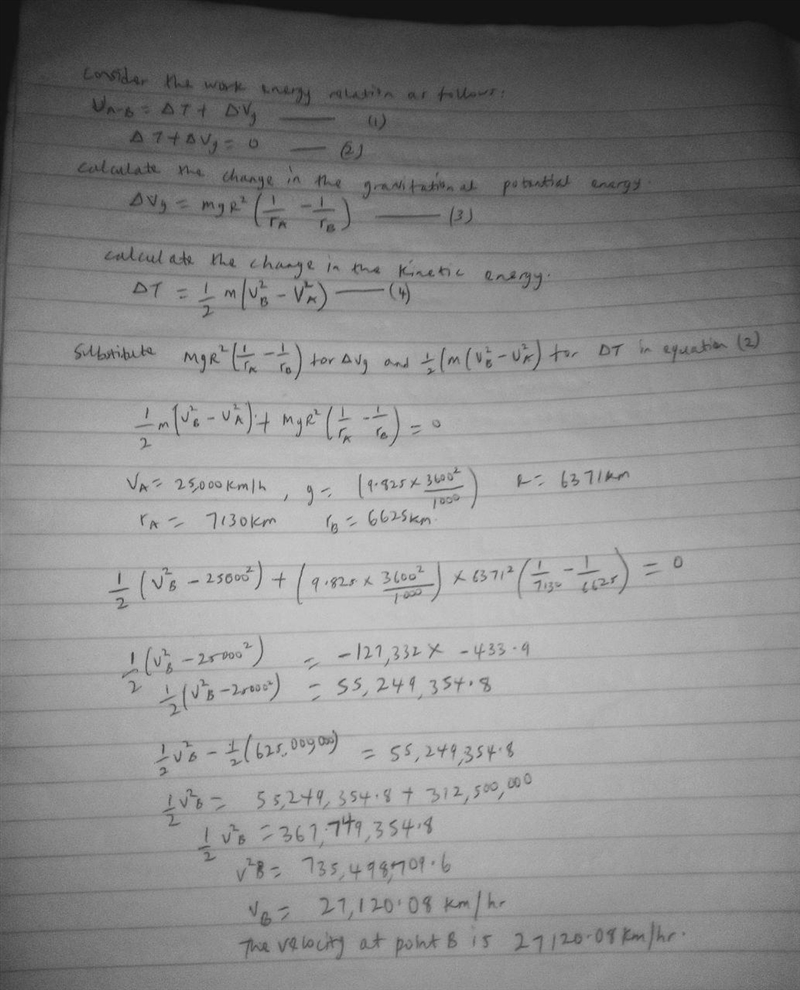 Consider the work energy relation as follows:
U_A-B = ΔT + ΔVg —— (1)
ΔT + ΔVg = 0 —— (2)
Calculate the change in the gravitational potential energy.
ΔVg = mgR² (1/rA - 1/rB) —— (3)
Calculate the change in the kinetic energy.
ΔT = 1/2 m (V²B - V²A) —— (4)
Substitute MgR² (1/rA - 1/rB) for ΔVg and 1/2 (m (V²B - V²A) for ΔT in equation (2)
1/2 m (V²B - V²A) + MgR² (1/rA - 1/rB) = 0
VA = 25,000 km/h , g = (9.825 × 3600²/1000) R = 6371km
rA = 7130km rB = 6625km.
1/2 (V²B - 25000²) + (9.825 × 3600²/1000) × 6371² (1/7130 - 1/6625) = 0
1/2 (V²B - 25000²) = -127,332 × -433.9
1/2 (V²B - 25000²) = 55,249,354.8
1/2 V²B - 1/2 (625,000,000) = 55,249,354.8
1/2 V²B = 55,249,354.8 + 312,500,000
1/2 V²B = 367,749,354.8
V²B = 735,498,709.6
VB = 27,120.08 km/hr
The velocity at point B is 27120.08km/hr.